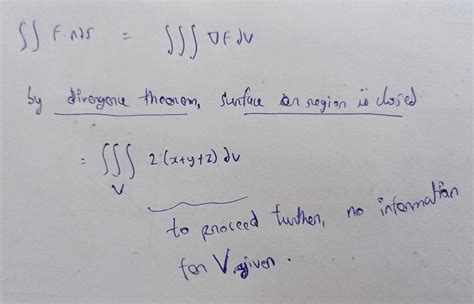 ∬ F.nds = ∭ ∇F dV
by divergence theorem, surface or region is closed
= ∭_V 2(x+y+z) dv
to proceed further, no information
for V given.